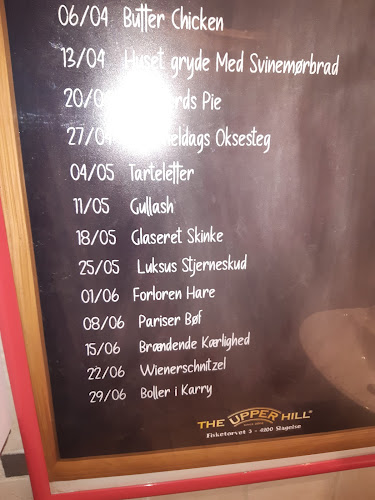 06/04 Butter Chicken
13/04 Huset gryde Med Svinemørbrad
Pie
27/04 Oksesteg
04/05 Tarteletter
11/05 Gullash
18/05 Glaseret Skinke
25/05 Luksus Stjerneskud
01/06 Forloren Hare
08/06 Pariser Bøf
15/06 Brændende Kærlighed
22/06 Wienerschnitzel
29/06 Boller i Karry
THE UPPER HILL
Fisketorvet 3 - 4200 Slagelse